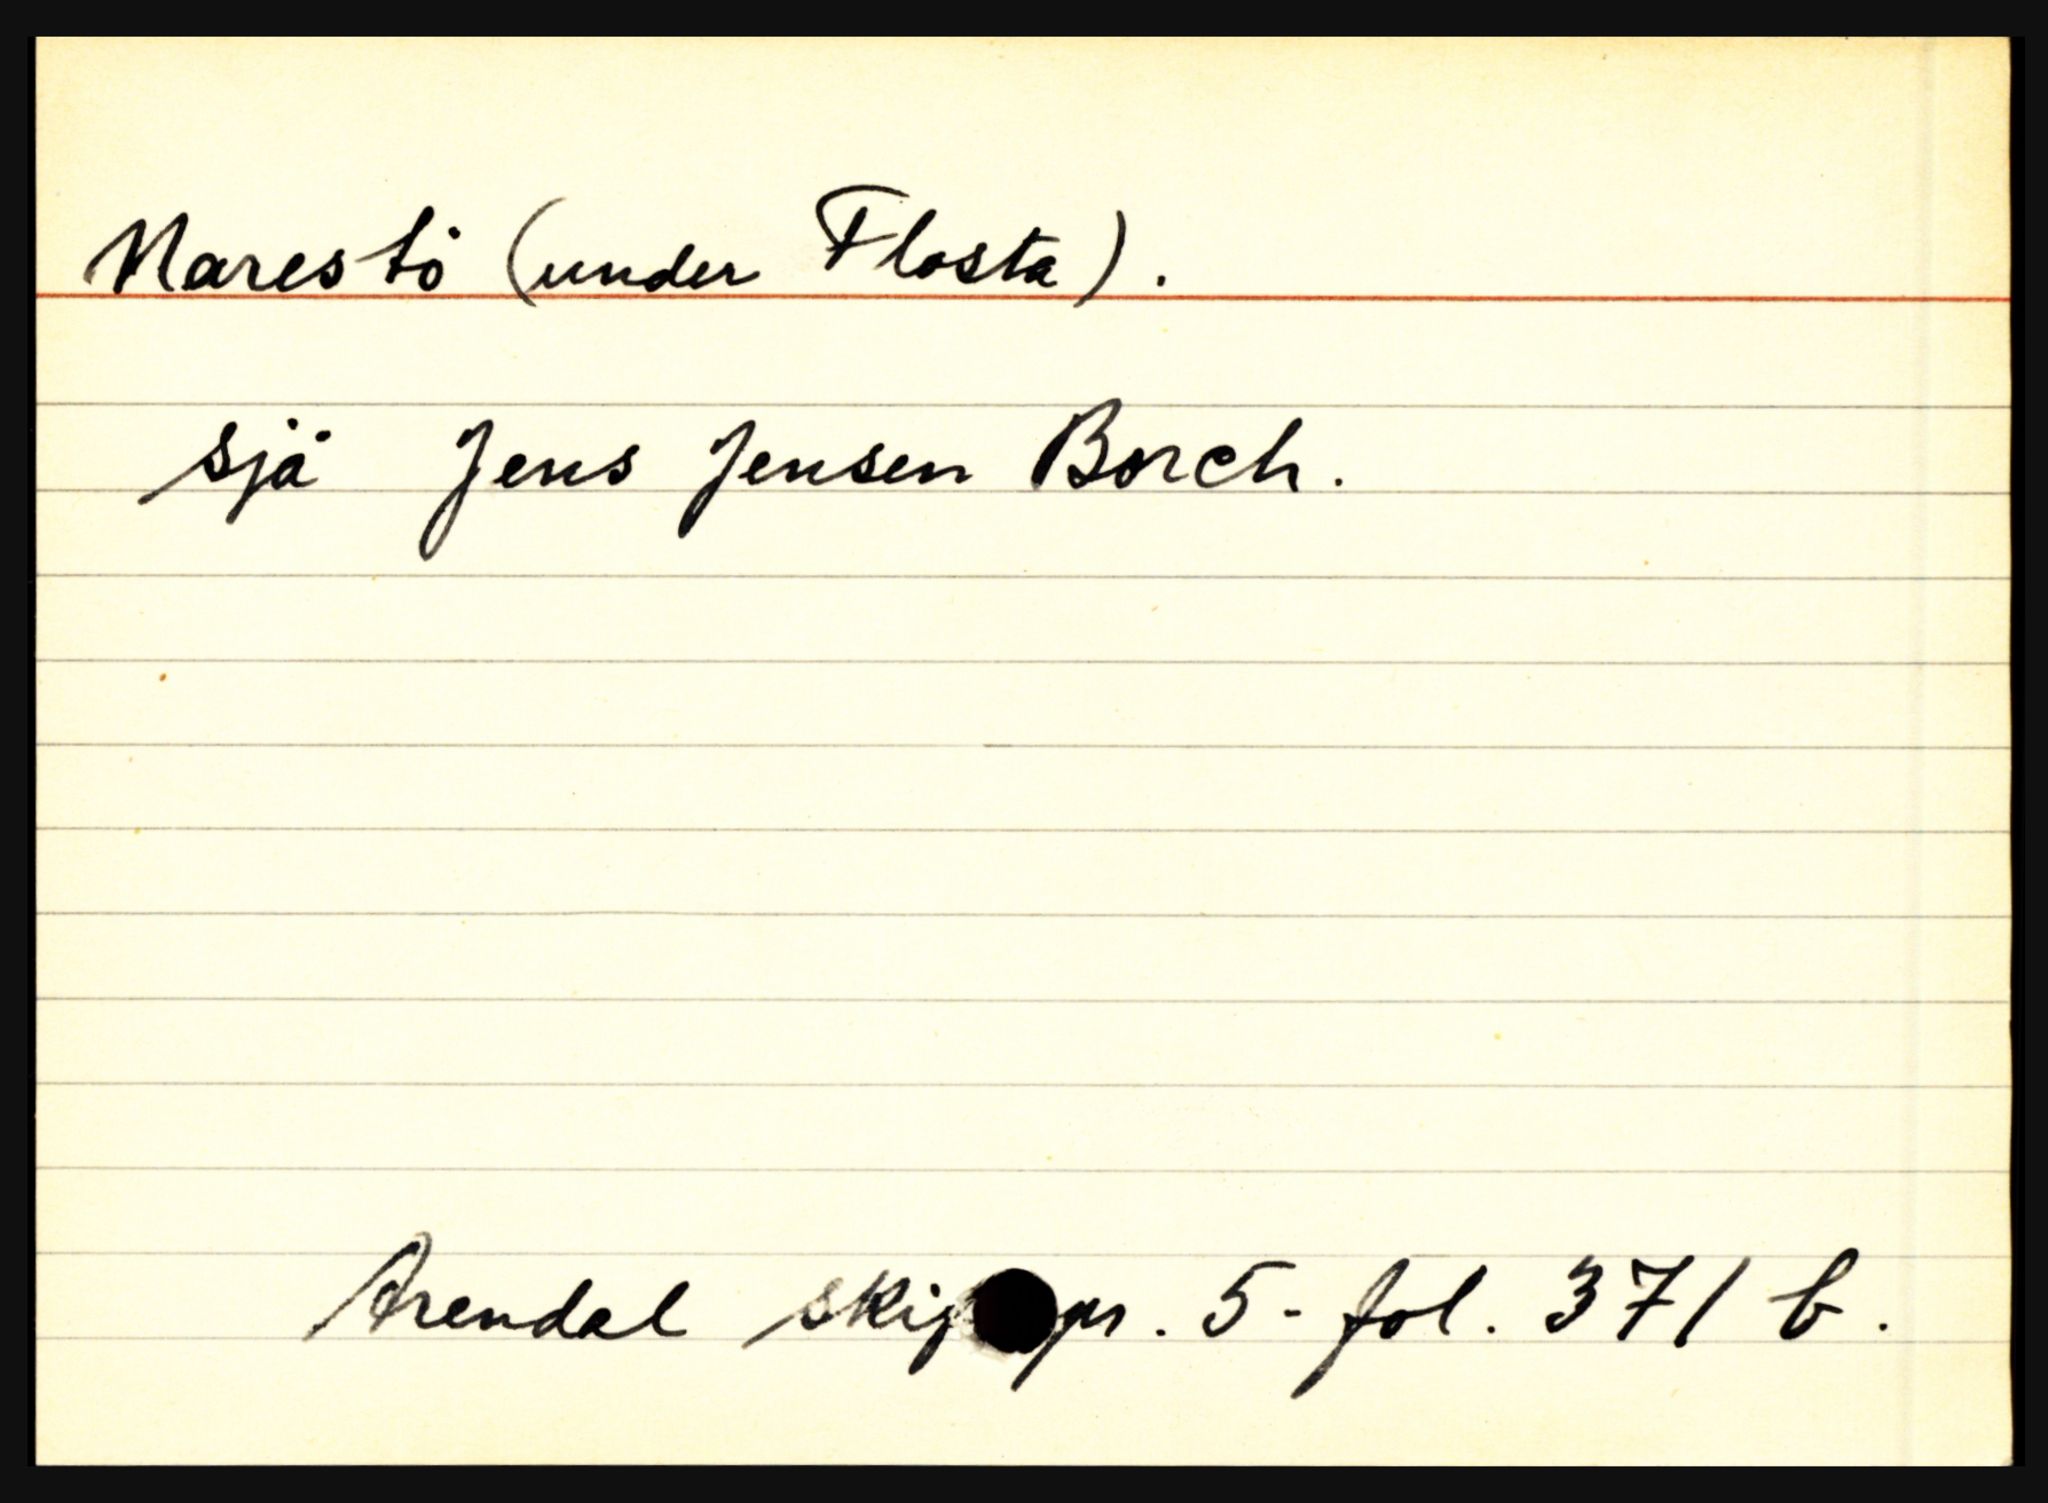 Narestö (under Flosta).
sjä Jens Jensen Borch.
Arendal pr. 5 - fol. 371 b.